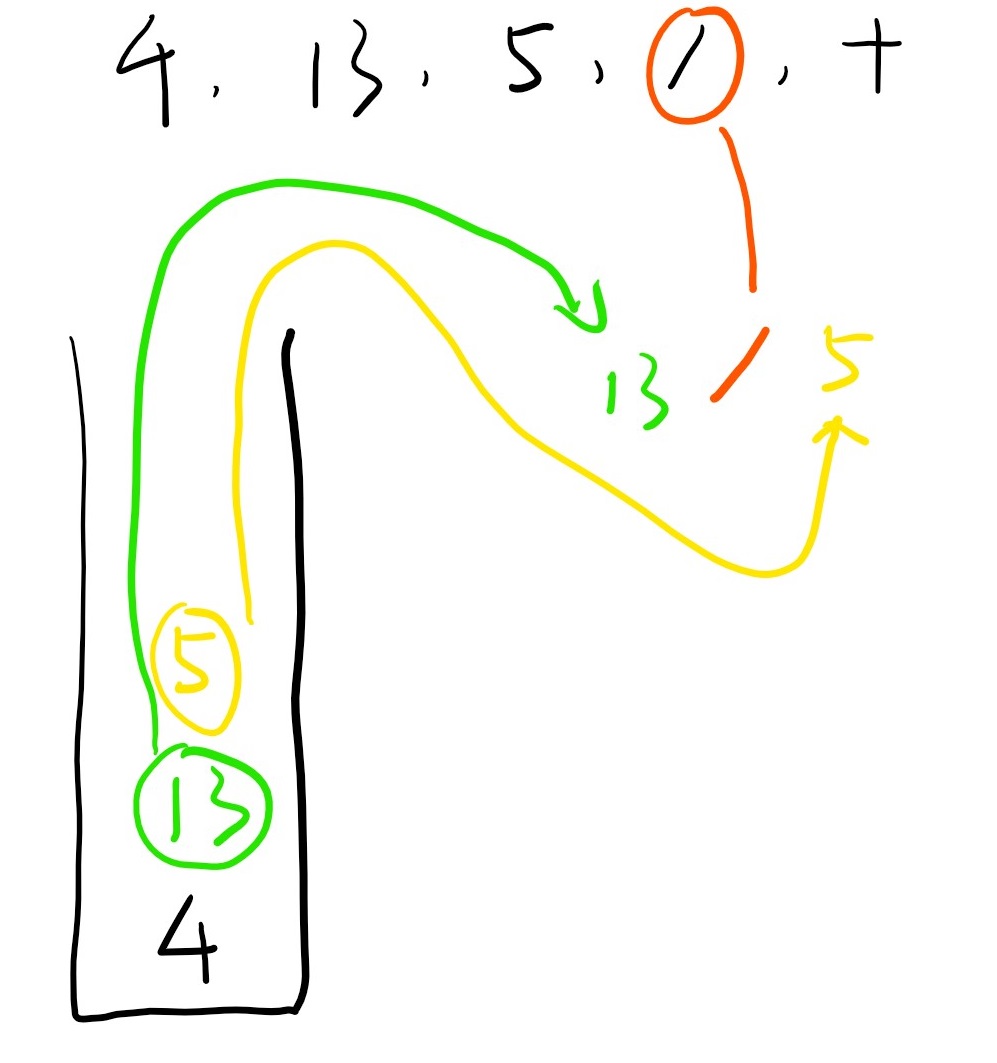 4, 13, 5, /, +
13 / 5
5
13
4